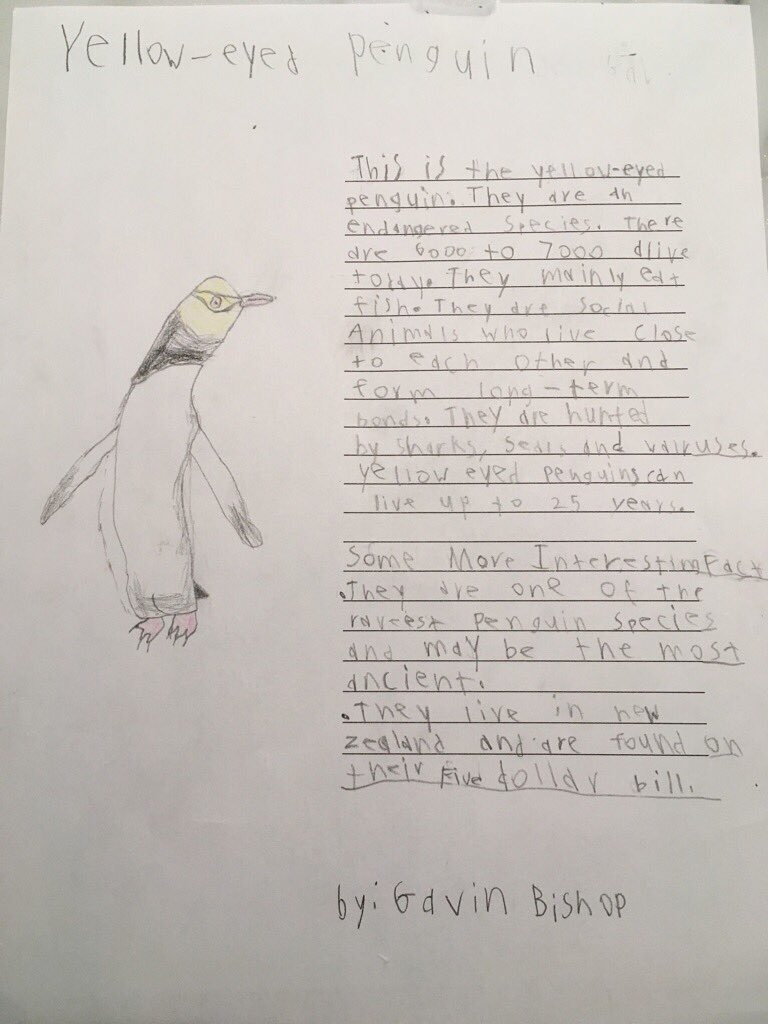 Yellow-eyed penguin
This is the yellow-eyed
penguin. They are an
endangered species. There
are 6000 to 7000 alive
today. They mainly eat
fish. They are social
Animals who live close
to each other and
form long-term
bonds. They are hunted
by sharks, seals and vairuses.
Yellow eyed penguins can
live up to 25 years.
Some More Interesting Fact
.They are one of the
rareest penguin species
and may be the most
ancient.
.They live in new
zealand and are found on
their five dollar bill.
by: Gavin Bishop